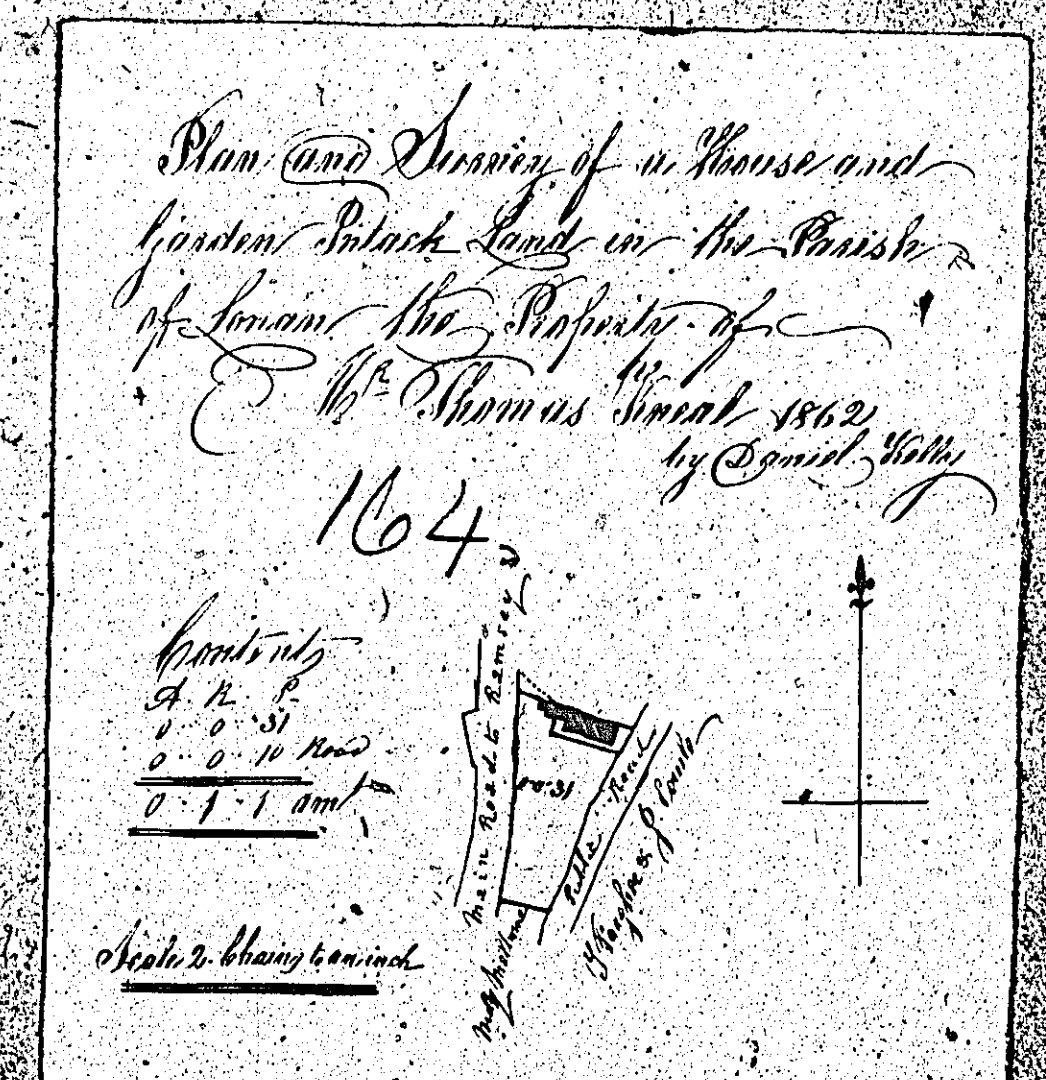 Plan and Survey of a House and
Garden Intack Land in the Parish
of Lonan the Property of
Mr Thomas Kneal 1862
by Daniel Kelly
164
Contents
A R P
0 0 31
0 0 10 Road
0 1 1 amt
Scale 2 Chains to an inch
Main Road to Ramsey
0 0 31
Public Road